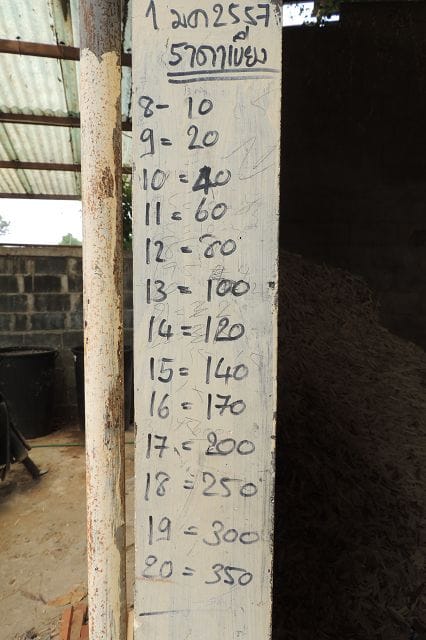 1 มค 2557
ราคาเขียง
8- 10
9= 20
10 = 40
11 = 60
12 = 80
13 = 100
14 = 120
15 = 140
16 = 170
17 = 200
18 = 250
19 = 300
20 = 350